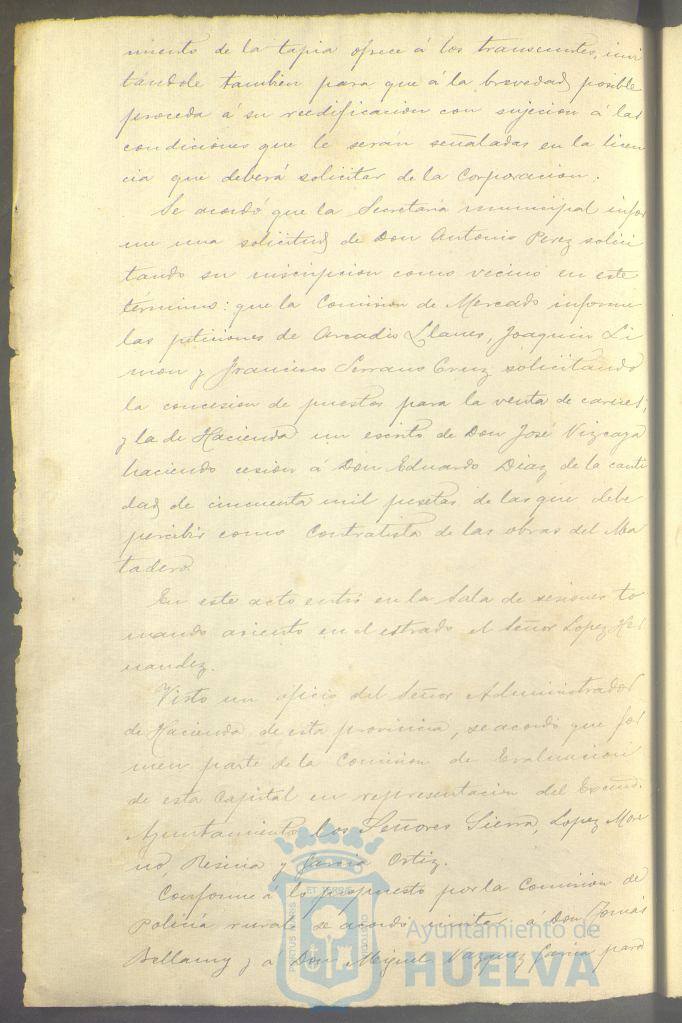 miento de la tapia ofrece á los transeuntes, invi
tándole tambien para que á la brevedad posible
proceda á su reedificacion con sujecion á las
condiciones que le serán señaladas en la licen
cia que deberá solicitar de la Corporacion.
Se acordó que la Secretaria municipal infor
me una solicitud de Don Antonio Perez solici
tando su inscripcion como vecino en este
término: que la Comision de Mercado informe
las peticiones de Arcadio Llanes, Joaquin Li
mon y Francisco Serrano Cruz solicitando
la concesion de puestos para la venta de carnes,
y la de Hacienda un escrito de Don José Vizcaya
haciendo cesion á Don Eduardo Diaz de la canti
dad de cincuenta mil pesetas de las que debe
percibir como Contratista de las obras del Ma
tadero.
En este acto entró en la Sala de sesiones to
mando asiento en el estrado el Señor Lopez Her
nandez.
Visto un oficio del Señor Administrador
de Hacienda de esta provincia, se acordó que for
men parte de la Comision de Evaluacion
de esta Capital en representacion del Excmo.
Ayuntamiento los Señores Sierra, Lopez More
no, Resina y Garcia Ortiz.
Conforme a lo propuesto por la Comision de
Policia rural se acordó invitar á Don Tomás
Bellamy y a Don Miguel Vazquez Garcia para
Ayuntamiento de
HUELVA